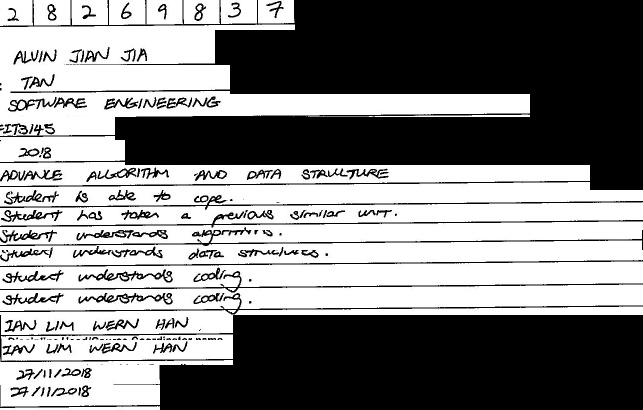 2 8 2 6 9 8 3 7
ALVIN JIAN JIA
TAN
SOFTWARE ENGINEERING
FIT3145
2018
ADVANCE ALGORITHM AND DATA STRUCTURE
Student is able to cope.
Student has taken a previous similar unit.
Student understands algorithms.
Student understands data structures.
Student understands coding.
Student understands coding.
IAN LIM WERN HAN
IAN LIM WERN HAN
27/11/2018
27/11/2018